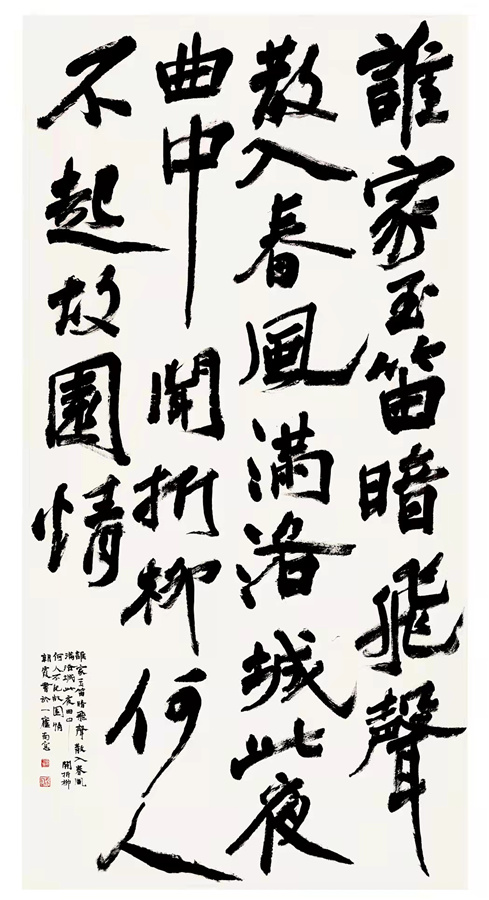 誰家玉笛暗飛聲
散入春風滿洛城此夜
曲中聞折柳何人
不起故園情
誰家玉笛暗飛聲散入春風
滿洛城此夜曲中聞折柳
何人不起故園情
朝霞書於一